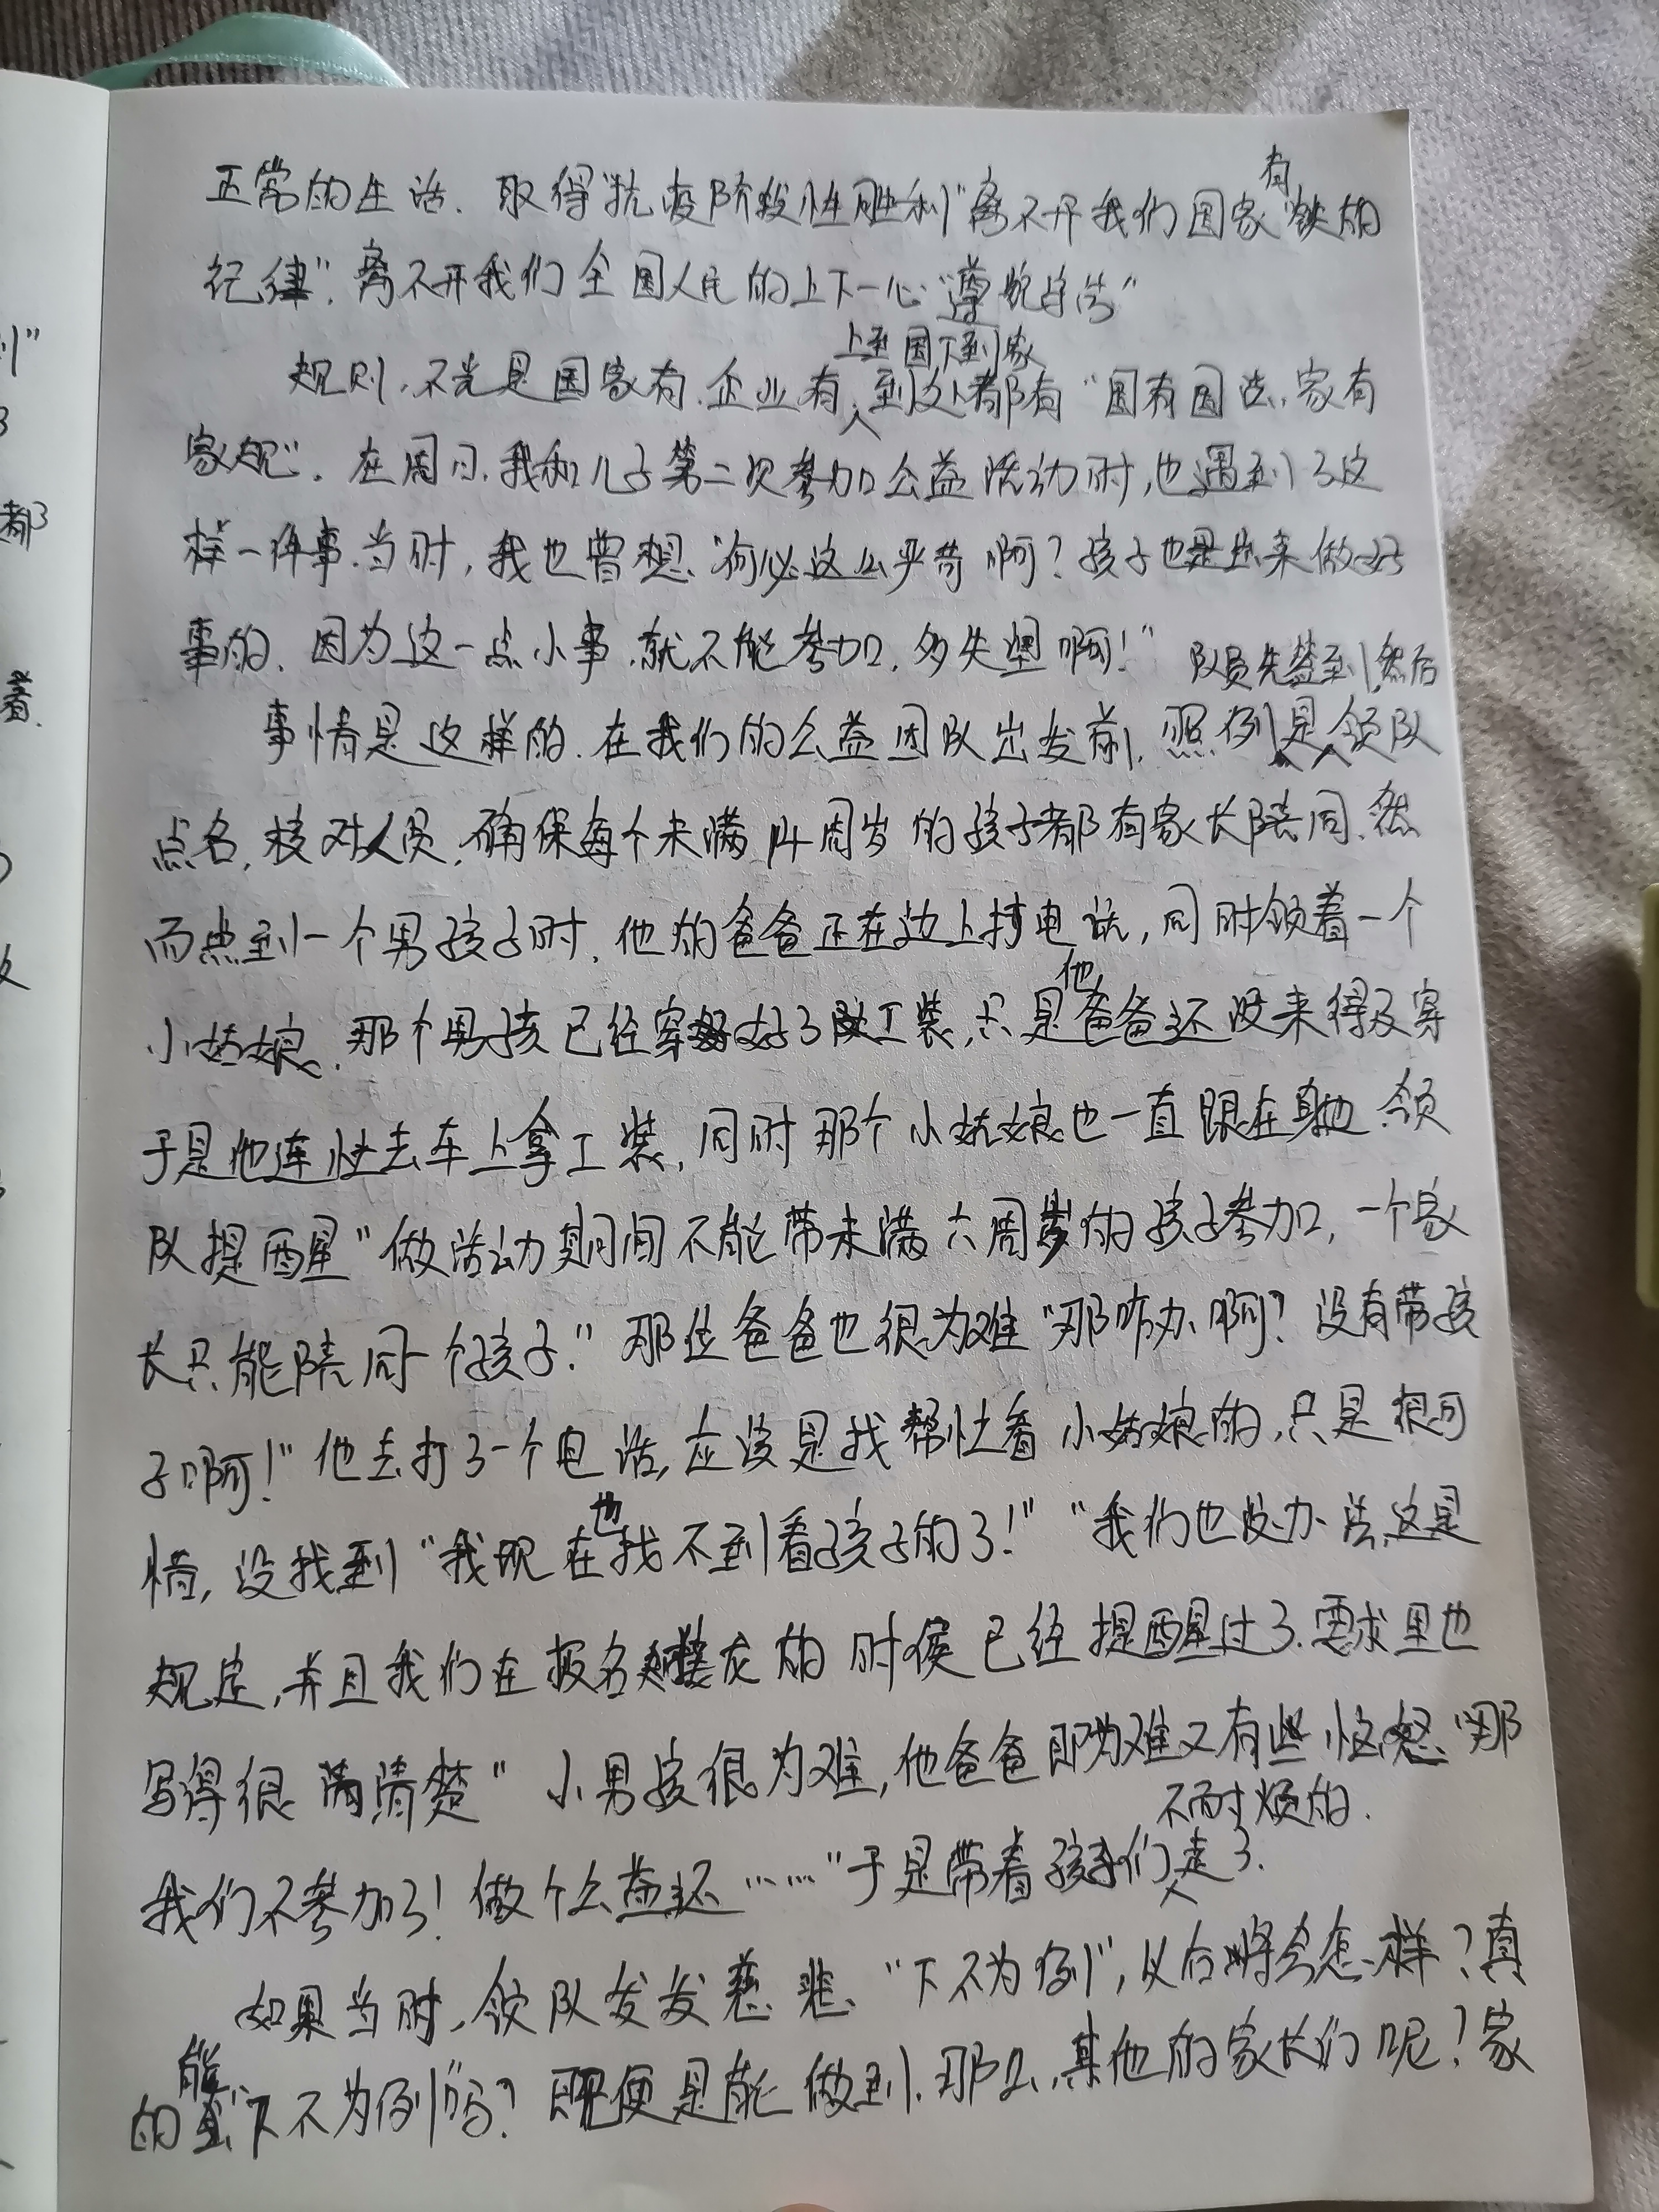 正常的生活、取得"抗疫阶段性胜利"离不开我们国家有"铁的
纪律"，离不开我们全国人民的上下一心"遵规守法"
规则，不光是国家有、企业有，上到国下到家到处都有"国有国法，家有
家规"。在周日，我和儿子第二次参加公益活动时，也遇到了这
样一件事。当时，我也曾想，"何必这么严苛啊？孩子也是出来做好
事的、因为这一点小事，就不能参加，多失望啊！"
事情是这样的，在我们的公益团队出发前，照例是队员先签到，然后领队
点名，核对人员，确保每个未满14周岁的孩子都有家长陪同、然
而点到一个男孩子时，他的爸爸正在边上打电话，同时领着一个
小姑娘。那个男孩已经穿好了工装，只是他爸爸还没来得及穿
于是他连忙去车上拿工装，同时那个小姑娘也一直跟在身边，领
队提醒"做活动期间不能带未满六周岁的孩子参加，一个家
长只能陪同一个孩子。"那位爸爸也很为难"那咋办啊？没有带孩
子啊！"他去打了一个电话，应该是找帮忙看小姑娘的，只是很可
惜，没找到"我现在也找不到看孩子的了！""我们也没办法，这是
规定，并且我们在报名接龙的时候已经提醒过了，要求里也
写得很清楚"小男孩很为难，他爸爸即为难又有些恼怒"那
我们不参加了！做个公益还……"于是带着孩子们不耐烦的走了。
如果当时，领队发发慈悲、"下不为例"，以后将会怎样？真
的能"下不为例"吗？既便是能做到，那么，其他的家长们呢？家